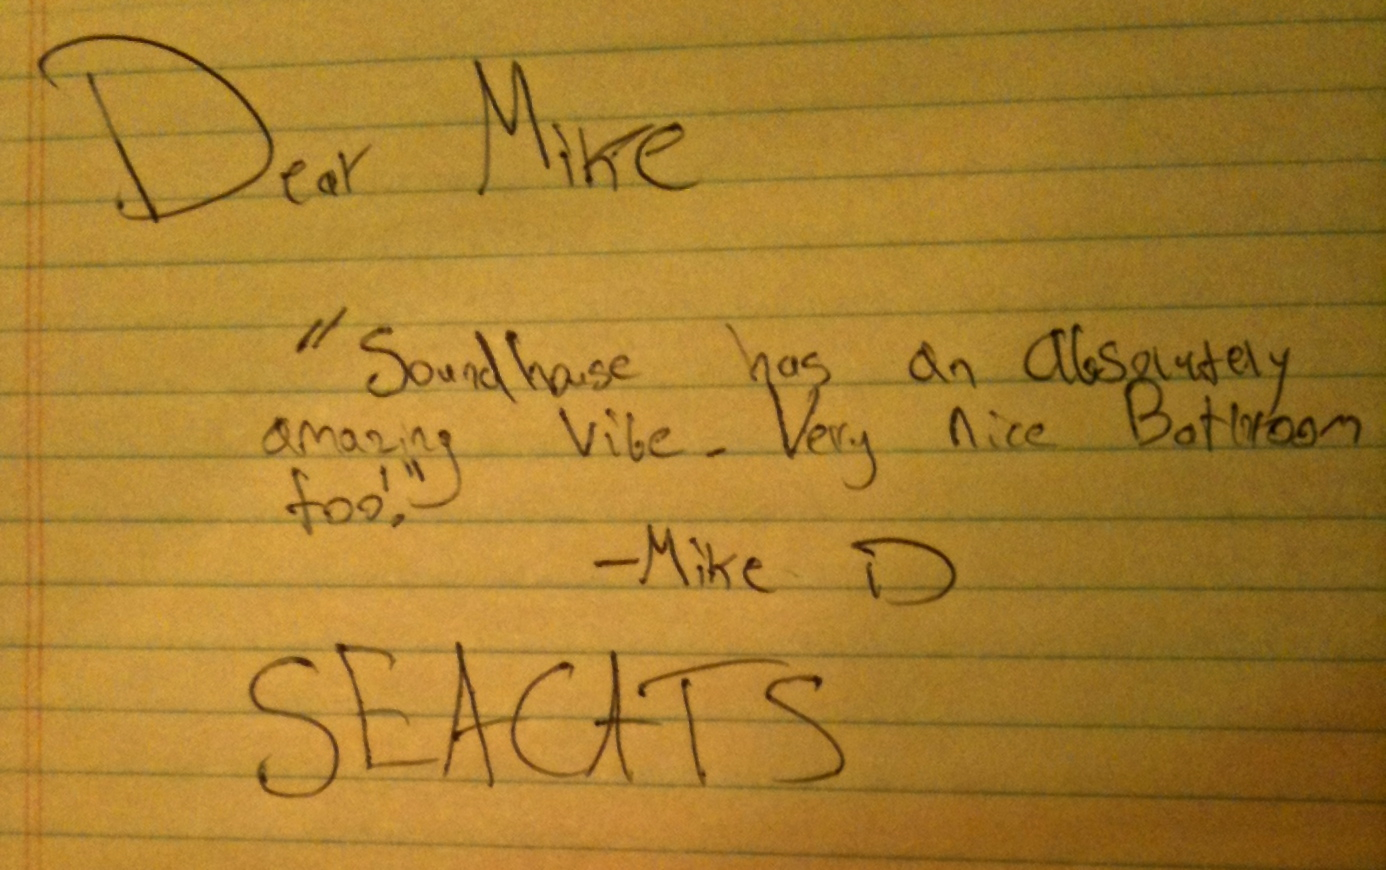 Dear Mike
"Soundhouse has an Absolutely
amazing Vibe. Very nice Bathroom
too!"
-Mike D
SEACATS